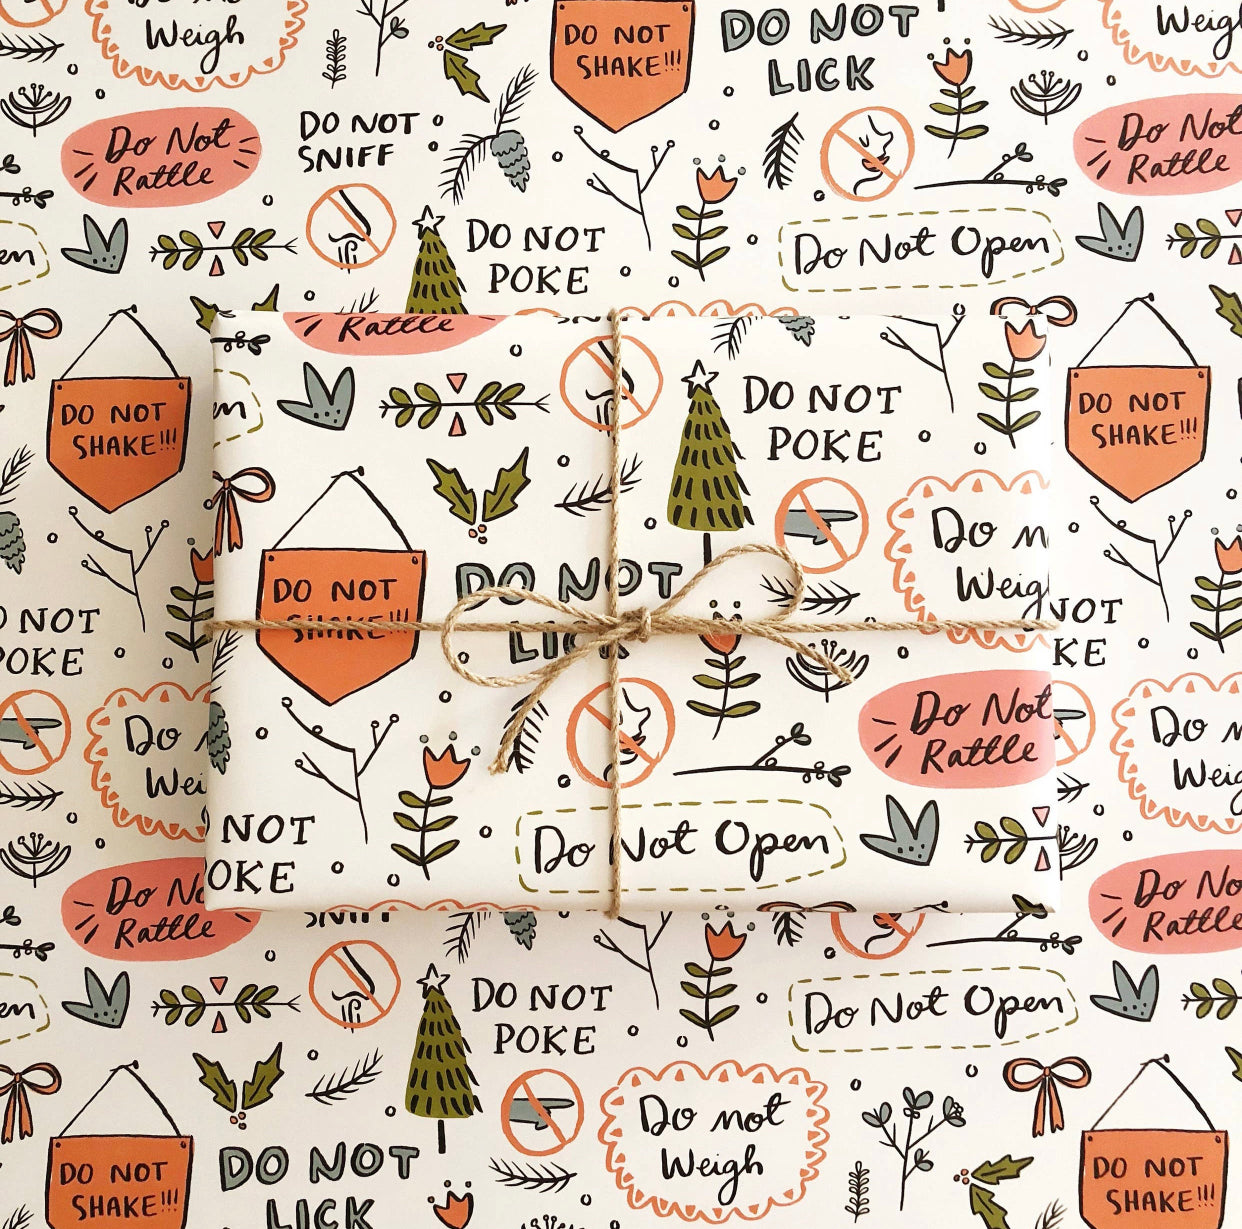 Weigh
DO NOT
SHAKE!!!
DO NOT
LICK
Weigh
Do Not
Rattle
DO NOT
SNIFF
Do Not
Rattle
DO NOT
POKE
Do Not Open
en
Rattle
DO NOT
SHAKE!!!
en
DO NOT
POKE
DO NOT
SHAKE!!!
DO NOT
SHAKE!!!
DO NOT
LICK
Do n
Weigh
NOT
POKE
NOT
KE
Do
Wei
Do Not
Rattle
Do n
Weig
NOT
OKE
Do Not Open
Do No
Rattle
Do No
Rattle
SNIFF
en
DO NOT
POKE
Do Not Open
DO NOT
SHAKE!!!
DO NOT
LICK
Do not
Weigh
DO NOT
SHAKE!!!